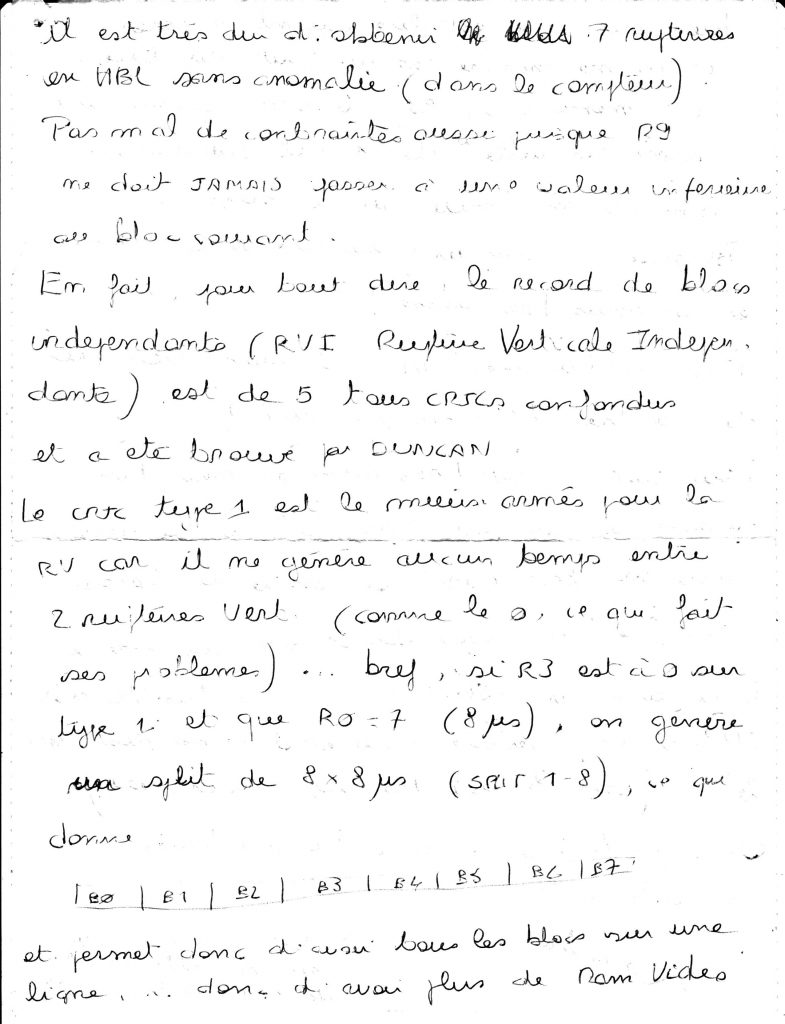 il est très dur d'obtenir 7 ruptures
en HBL sans anomalie (dans le compteur).
Pas mal de contraintes aussi puisque R9
ne doit JAMAIS passer à une valeur inferieure
au bloc courant.
En fait, pour tout dire, le record de blocs
independants (RVI Rupture Verticale Indepen.
dante) est de 5 tous CRTCs confondus
et a été trouvé par DUNCAN
Le crtc type 1 est le mieux armés pour la
RV car il ne génère aucun temps entre
2 ruptures Vert. (comme le 0, ce qui fait
ses problemes) ... bref, si R3 est à 0 sur
type 1 et que R0=7 (8 µs), on génère
un split de 8 x 8 µs (SPLIT 1-8), ce qui
donne
|B0 | B1 | B2 | B3 | B4 | B5 | B6 | B7
et permet donc d'avoir tous les blocs sur une
ligne, ... donc d'avoir plus de Ram Video